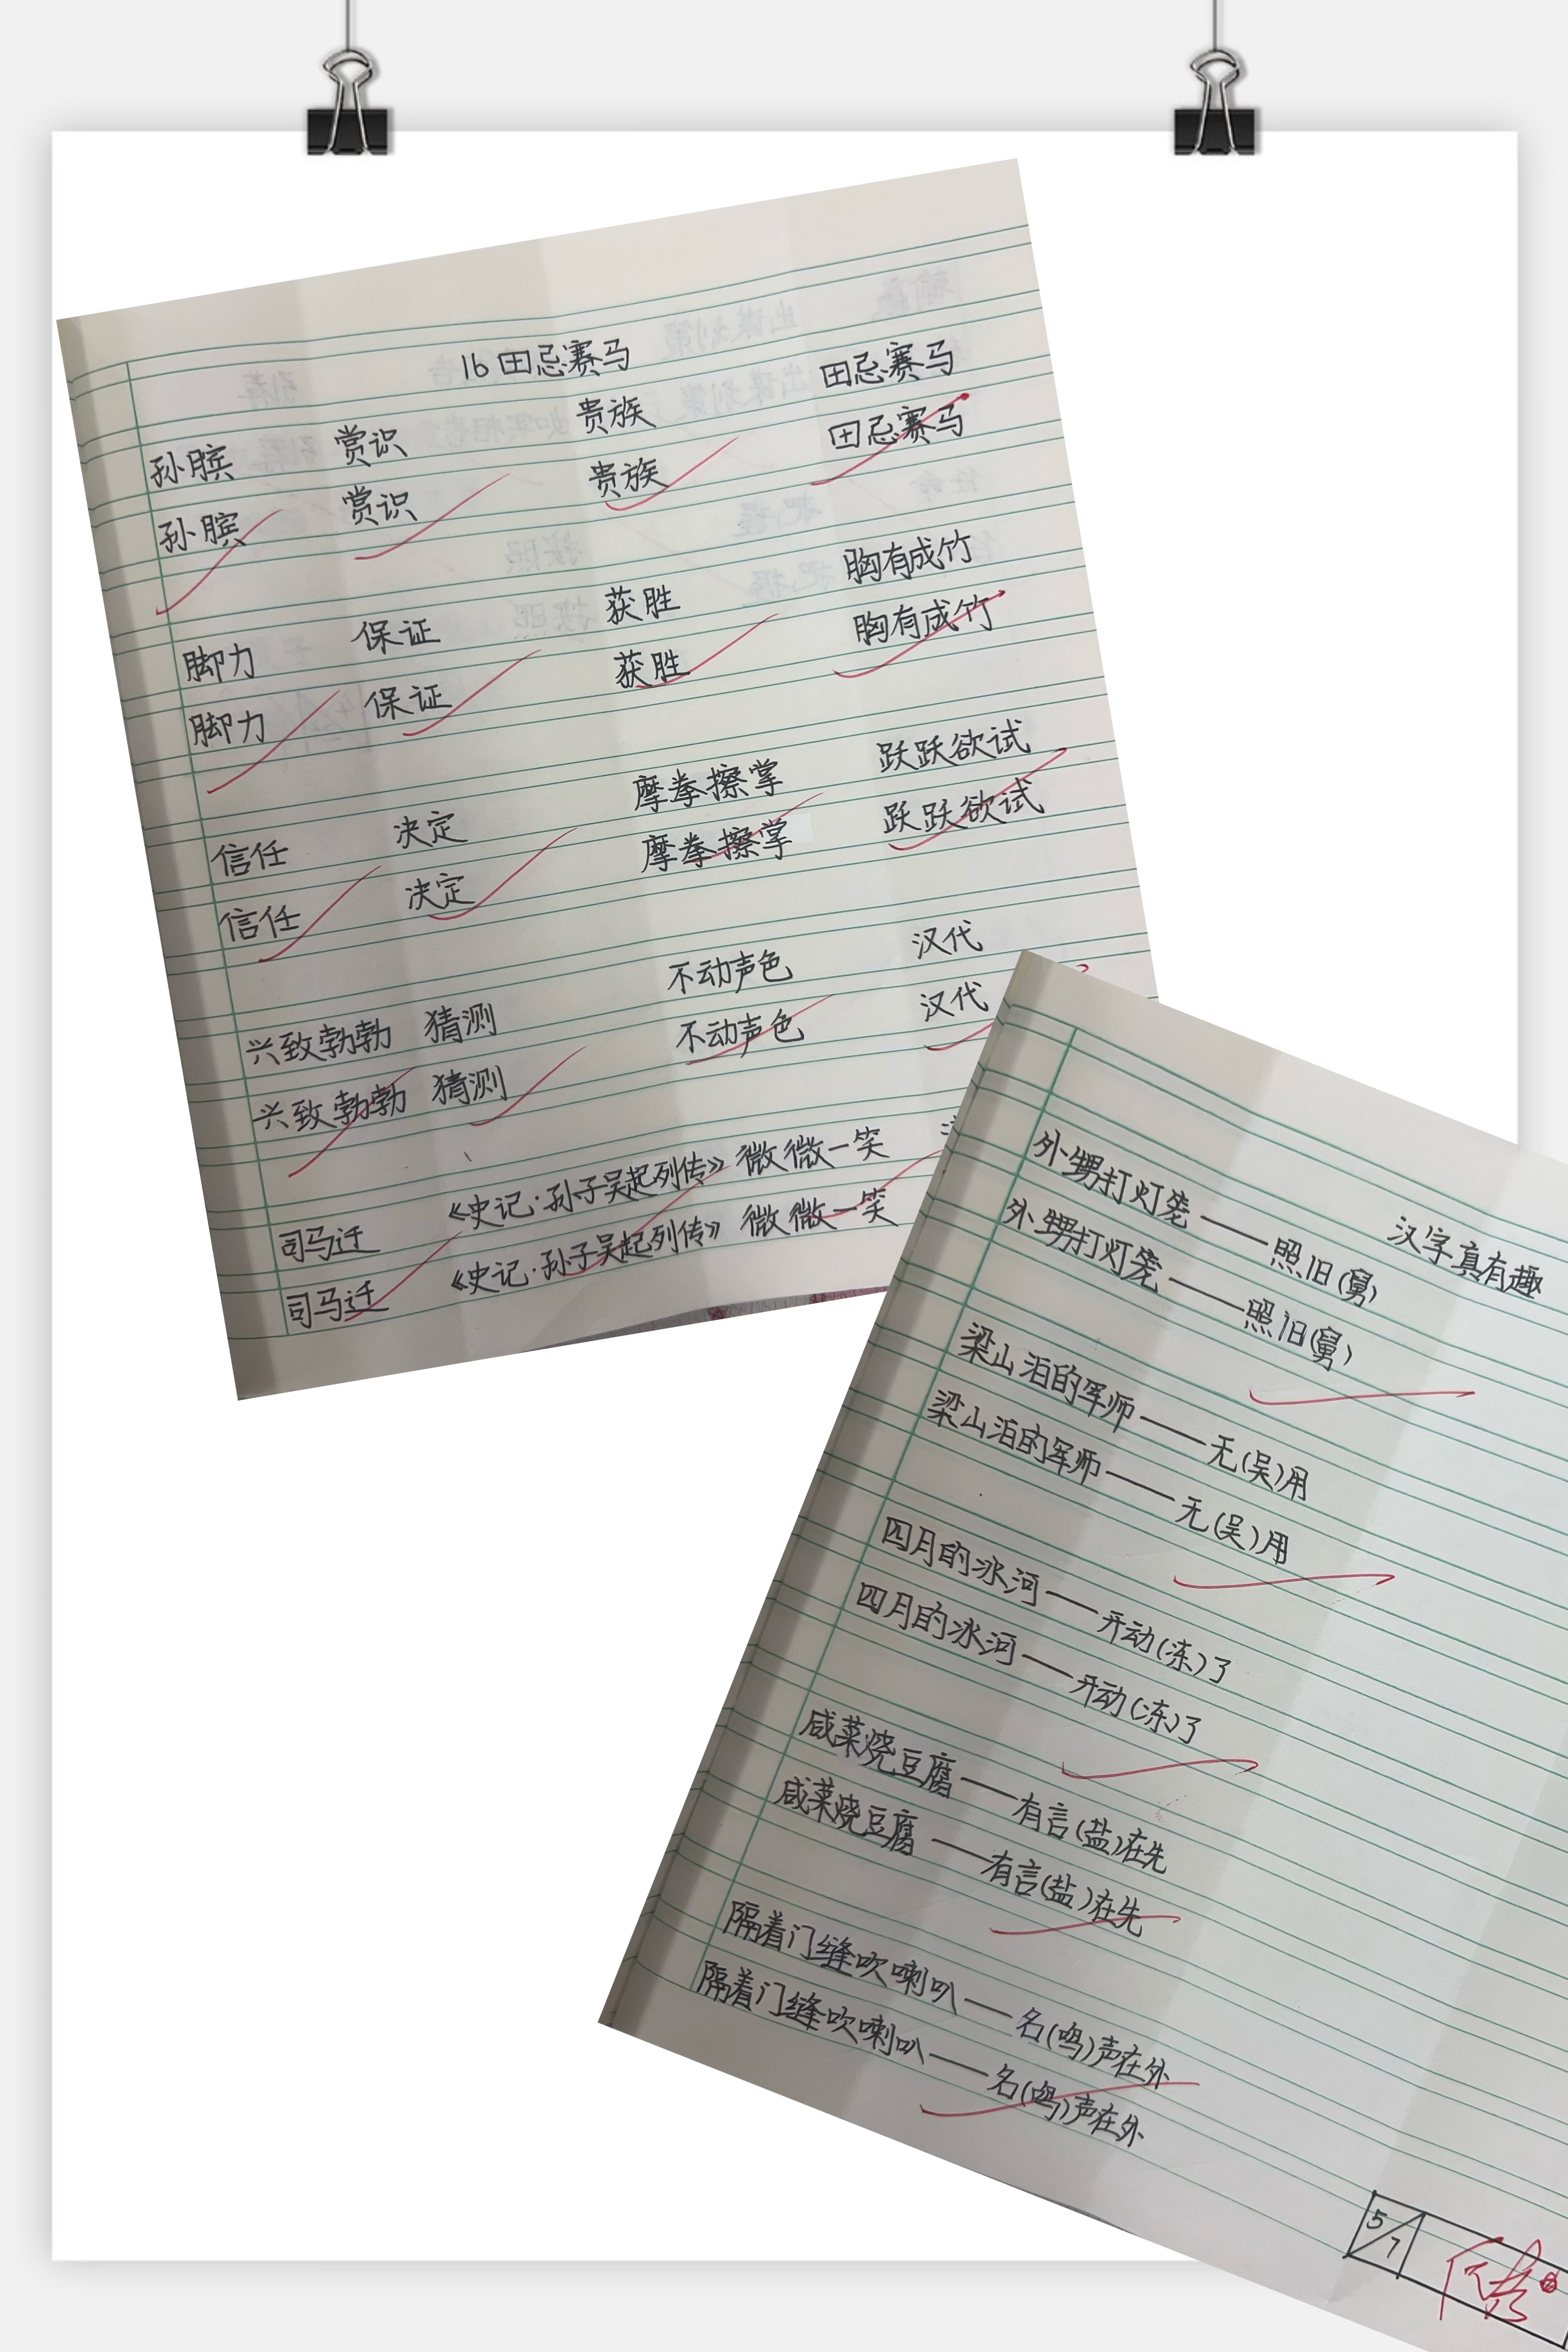 16 田忌赛马
孙膑 赏识 贵族 田忌赛马
孙膑 赏识 贵族 田忌赛马
脚力 保证 获胜 胸有成竹
脚力 保证 获胜 胸有成竹
信任 决定 摩拳擦掌 跃跃欲试
信任 决定 摩拳擦掌 跃跃欲试
兴致勃勃 猜测 不动声色 汉代
兴致勃勃 猜测 不动声色 汉代
司马迁 《史记·孙子吴起列传》 微微一笑
司马迁 《史记·孙子吴起列传》 微微一笑
汉字真有趣
外甥打灯笼——照旧(舅)
外甥打灯笼——照旧(舅)
梁山泊的军师——无(吴)用
梁山泊的军师——无(吴)用
四月的冰河——开动(冻)了
四月的冰河——开动(冻)了
咸菜烧豆腐——有言(盐)在先
咸菜烧豆腐——有言(盐)在先
隔着门缝吹喇叭——名(鸣)声在外
隔着门缝吹喇叭——名(鸣)声在外
5/7